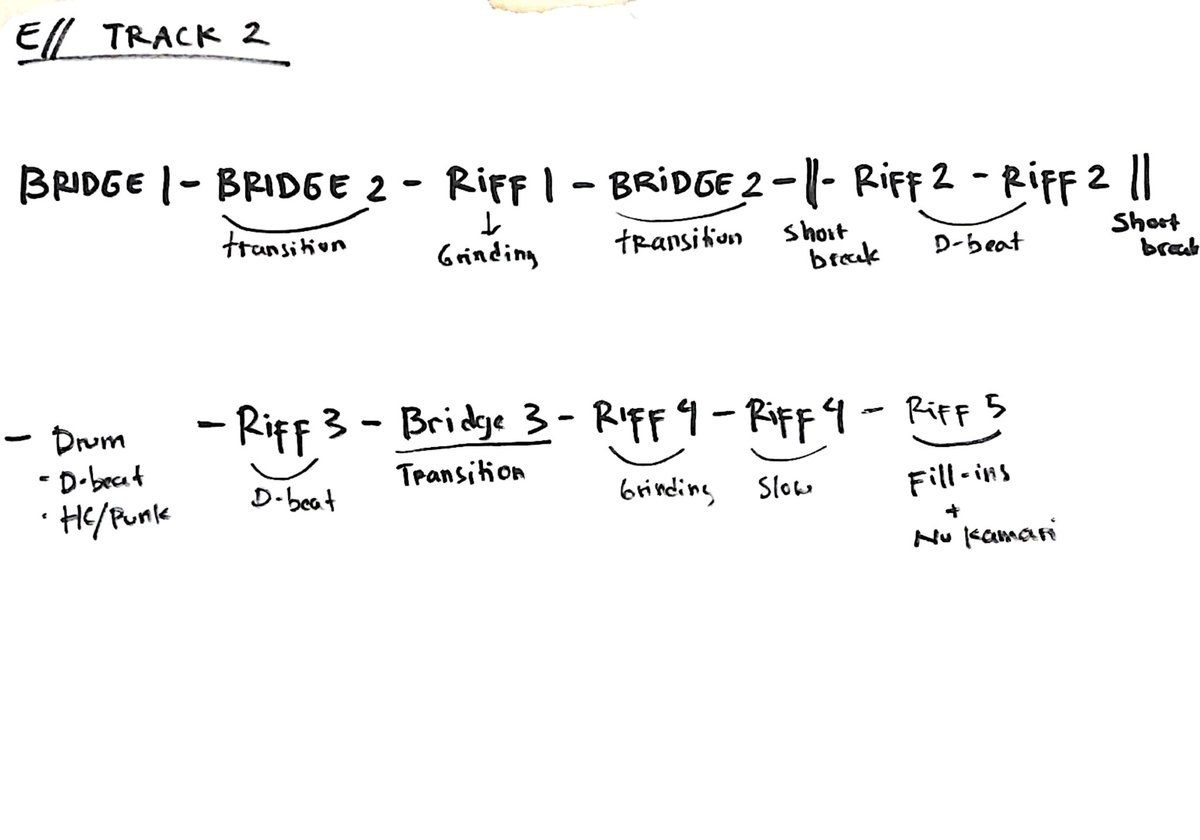 E// TRACK 2
BRIDGE 1 - BRIDGE 2 - RiFF 1 - BRiDGE 2 - || - RiFF 2 - RiFF 2 ||
transition Grinding transition short break D-beat Short break
- Drum - RiFF 3 - Bridge 3 - RIFF 4 - RiFF 4 - RiFF 5
- D-beat D-beat Transition Grinding Slow Fill-ins
· HC/Punk +
Nu kamari